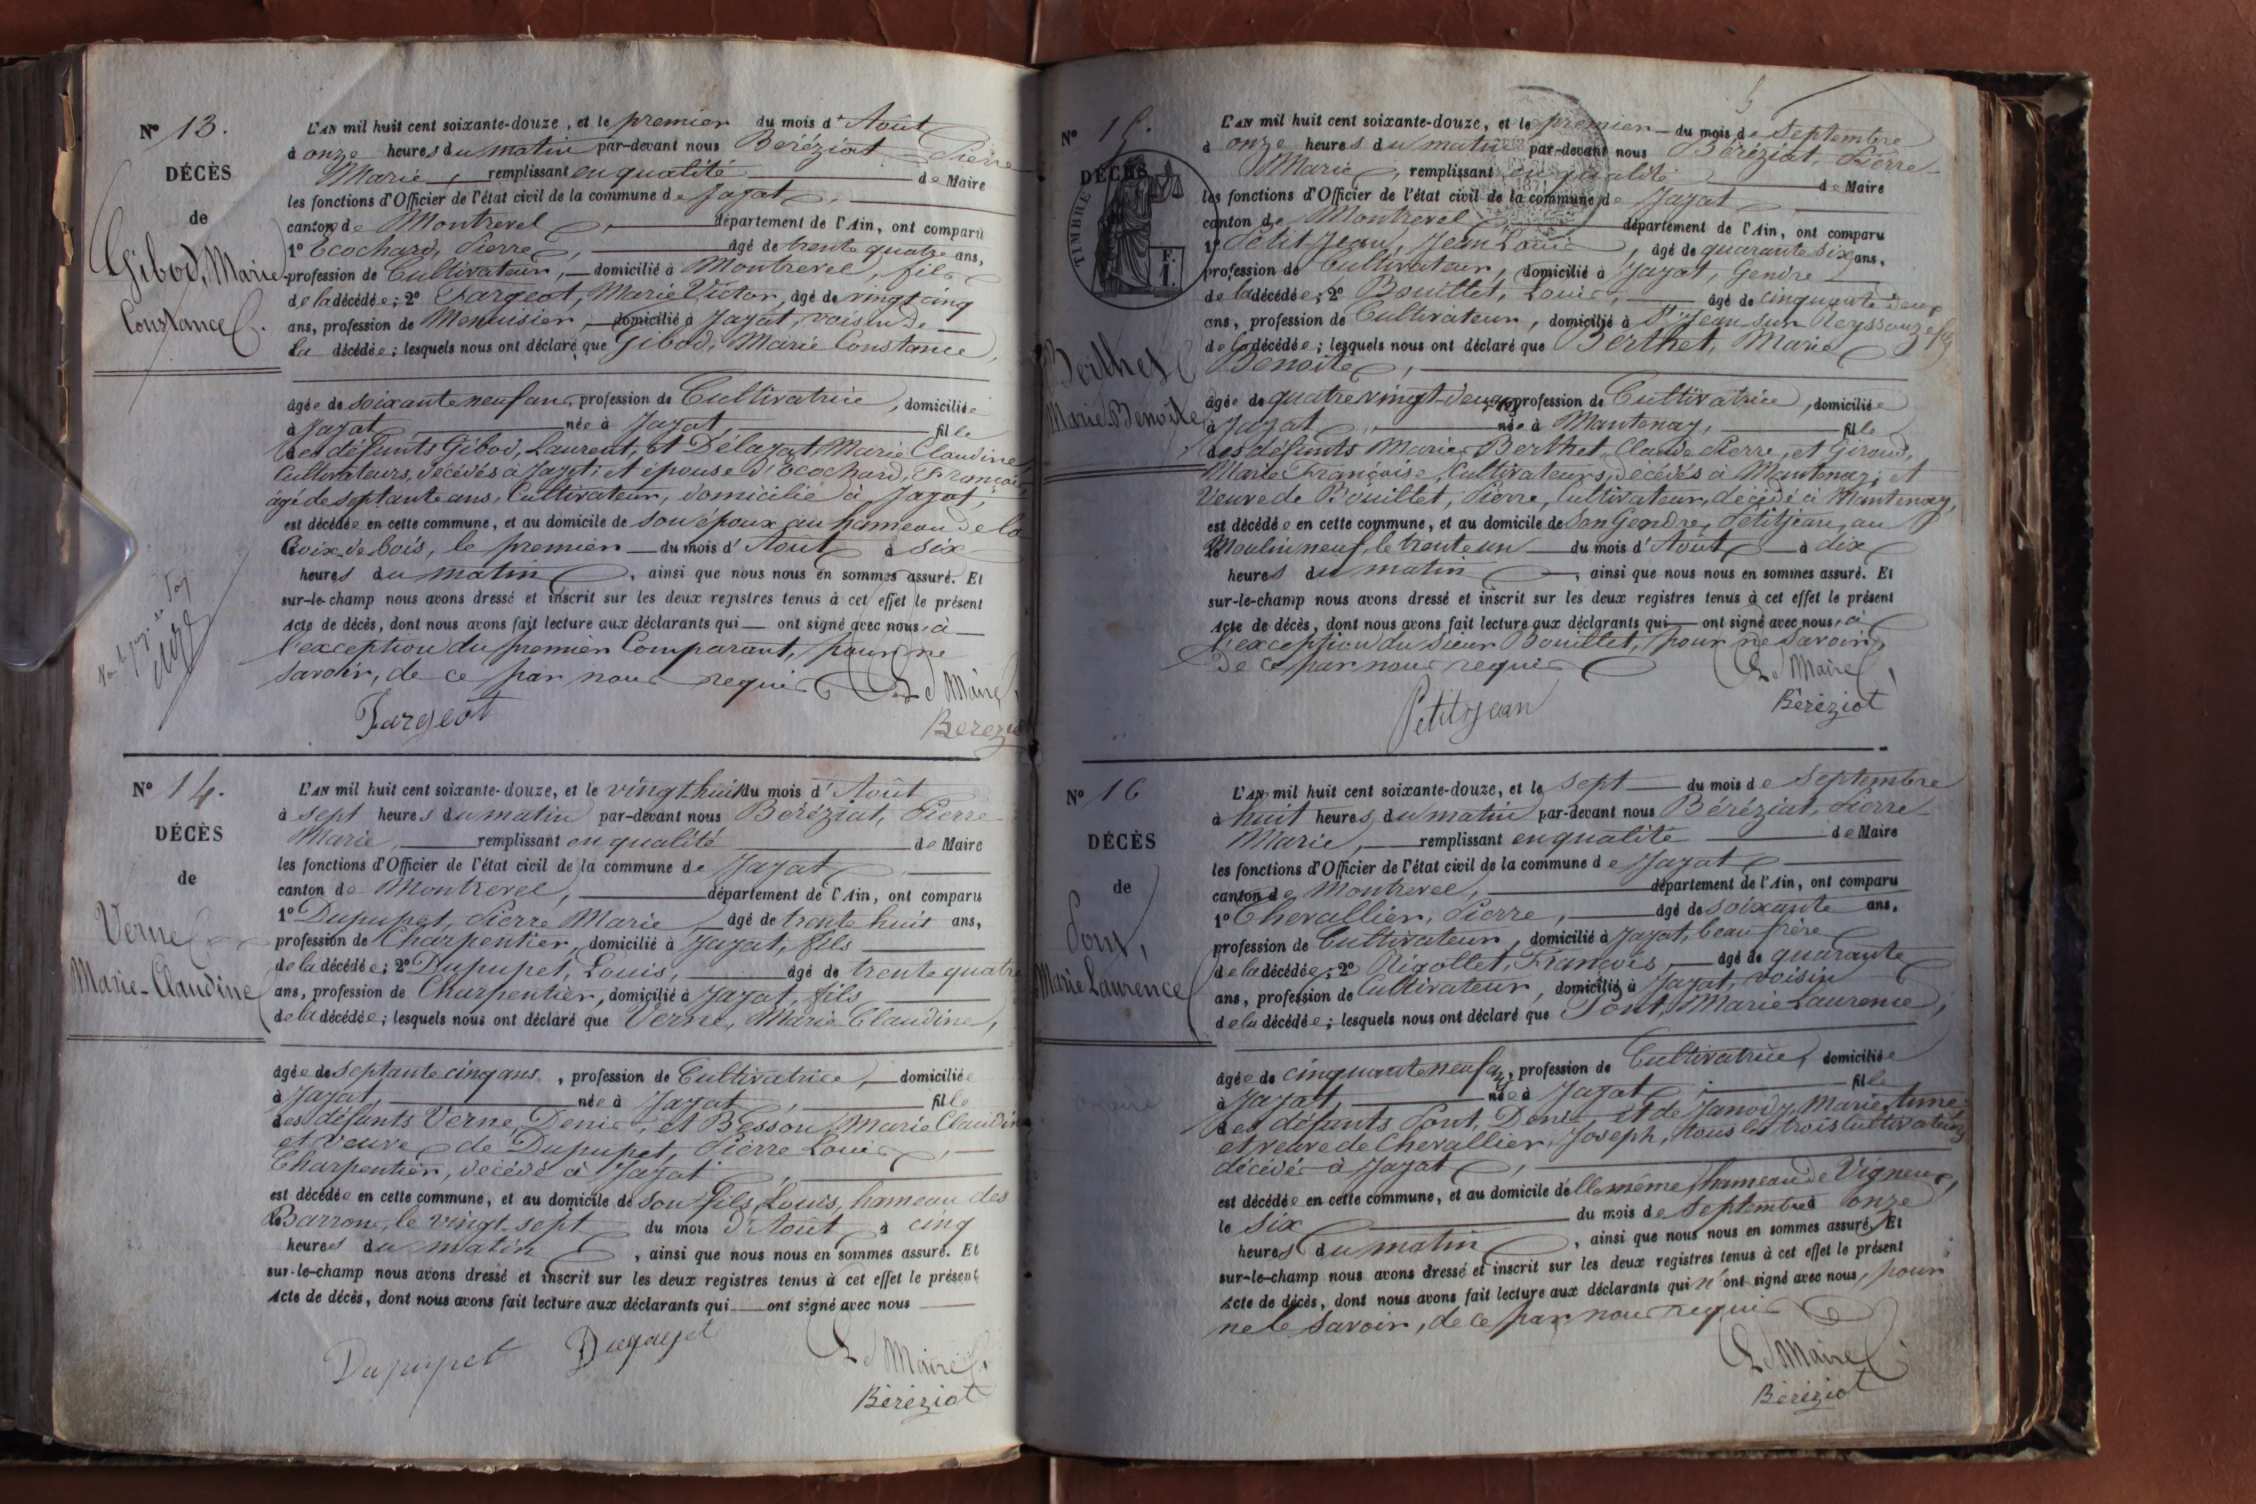 N° 13.
DÉCÈS
de
Gibod, Marie
Constance
L'AN mil huit cent soixante-douze, et le premier du mois d'Août
à onze heures du matin par-devant nous Béréziat, Pierre
Marie, remplissant en qualité de Maire
les fonctions d'Officier de l'état civil de la commune de Jayat,
canton de Montrevel département de l'Ain, ont comparu
1° Ecochard, Pierre, âgé de trente quatre ans,
profession de Cultivateur, domicilié à Montrevel, fils
de la décédée; 2° Fargeot, Marie Victor, âgé de vingt cinq
ans, profession de Menuisier, domicilié à Jayat, voisin de
la décédée; lesquels nous ont déclaré que Gibod, Marie Constance,
âgée de soixante neuf ans, profession de Cultivatrice, domiciliée
à Jayat née à Jayat, fille
des défunts Gibod, Laurent, et Délayat Marie Claudine,
Cultivateurs, décédés à Jayat; et épouse d'Ecochard, François
âgé de septante ans, Cultivateur, domicilié à Jayat,
est décédée en cette commune, et au domicile de son époux au hameau de la
Croix de bois, le premier du mois d'Août à six
heures du matin, ainsi que nous nous en sommes assuré. Et
sur-le-champ nous avons dressé et inscrit sur les deux registres tenus à cet effet le présent
Acte de décès, dont nous avons fait lecture aux déclarants qui ont signé avec nous, à
l'exception du premier Comparant, pour ne
savoir, de ce par nous requis
Le Maire,
Fargeot
Bérézia
N° 14.
DÉCÈS
de
Verne
Marie-Claudine
L'AN mil huit cent soixante-douze, et le vingt huit du mois d'Août
à sept heures du matin par-devant nous Béréziat, Pierre
Marie, remplissant en qualité de Maire
les fonctions d'Officier de l'état civil de la commune de Jayat,
canton de Montrevel, département de l'Ain, ont comparu
1° Dupupet, Pierre Marie, âgé de trente huit ans,
profession de Charpentier, domicilié à Jayat, fils
de la décédée; 2° Dupupet, Louis, âgé de trente quatre
ans, profession de Charpentier, domicilié à Jayat, fils
de la décédée; lesquels nous ont déclaré que Verne, Marie Claudine,
âgée de septante cinq ans, profession de Cultivatrice, domiciliée
à Jayat, née à Jayat, fille
des défunts Verne Denis, et Besson, Marie Claudine
et veuve de Dupupet, Pierre Louis,
Charpentier, décédé à Jayat,
est décédée en cette commune, et au domicile de son fils, Louis, hameau des
Barrons, le vingt sept du mois d'Août à cinq
heures du matin, ainsi que nous nous en sommes assuré. Et
sur-le-champ nous avons dressé et inscrit sur les deux registres tenus à cet effet le présent
Acte de décès, dont nous avons fait lecture aux déclarants qui ont signé avec nous
Dupupet Dupupet
Le Maire,
Béréziat
N° 15.
DÉCÈS
TIMBRE
F.
1.
Berthet
Marie Benoite
L'AN mil huit cent soixante-douze, et le premier du mois de Septembre
à onze heures du matin par-devant nous Béréziat, Pierre
Marie, remplissant en qualité de Maire
les fonctions d'Officier de l'état civil de la commune de Jayat
canton de Montrevel département de l'Ain, ont comparu
1° Petitjean, Jean Louis, âgé de quarante six ans,
profession de Cultivateur, domicilié à Jayat, Gendre
de la décédée; 2° Bouillet, Louis, âgé de cinquante deux
ans, profession de Cultivateur, domicilié à St Jean sur Reyssouze, fils
de la décédée; lesquels nous ont déclaré que Berthet, Marie
Benoite,
âgée de quatre vingt deux ans, profession de Cultivatrice, domiciliée
à Jayat, née à Mantenay, fille
des défunts Marie Berthet Claude Pierre, et Giroud,
Marie Françoise, Cultivateurs, décédés à Mantenay; et
Veuve de Bouillet, Pierre, Cultivateur, décédé à Mantenay,
est décédée en cette commune, et au domicile de son Gendre, Petitjean, au
Moulin neuf, le trente un du mois d'Août à dix
heures du matin, ainsi que nous nous en sommes assuré. Et
sur-le-champ nous avons dressé et inscrit sur les deux registres tenus à cet effet le présent
Acte de décès, dont nous avons fait lecture aux déclarants qui ont signé avec nous, à
l'exception du sieur Bouillet, pour ne savoir,
de ce par nous requis
Le Maire,
Petitjean
Béréziat
N° 16
DÉCÈS
de
Pont,
Marie Laurence
L'AN mil huit cent soixante-douze, et le sept du mois de Septembre
à huit heures du matin par-devant nous Béréziat, Pierre
Marie, remplissant en qualité de Maire
les fonctions d'Officier de l'état civil de la commune de Jayat
canton de Montrevel, département de l'Ain, ont comparu
1° Chevallier, Pierre, âgé de soixante ans,
profession de Cultivateur, domicilié à Jayat, beau frère
de la décédée; 2° Rigollet, François, âgé de quarante
ans, profession de Cultivateur, domicilié à Jayat, voisin
de la décédée; lesquels nous ont déclaré que Pont, Marie Laurence,
âgée de cinquante neuf ans, profession de Cultivatrice, domiciliée
à Jayat, née à Jayat, fille
des défunts Pont, Denis et de Janody, Marie,
et veuve de Chevallier, Joseph, tous les trois Cultivateurs
décédés à Jayat,
est décédée en cette commune, et au domicile d'elle même, hameau de Vigneux,
le six du mois de Septembre à onze
heures du matin, ainsi que nous nous en sommes assuré. Et
sur-le-champ nous avons dressé et inscrit sur les deux registres tenus à cet effet le présent
Acte de décès, dont nous avons fait lecture aux déclarants qui n'ont signé avec nous, pour
ne le savoir, de ce par nous requis
Le Maire,
Béréziat